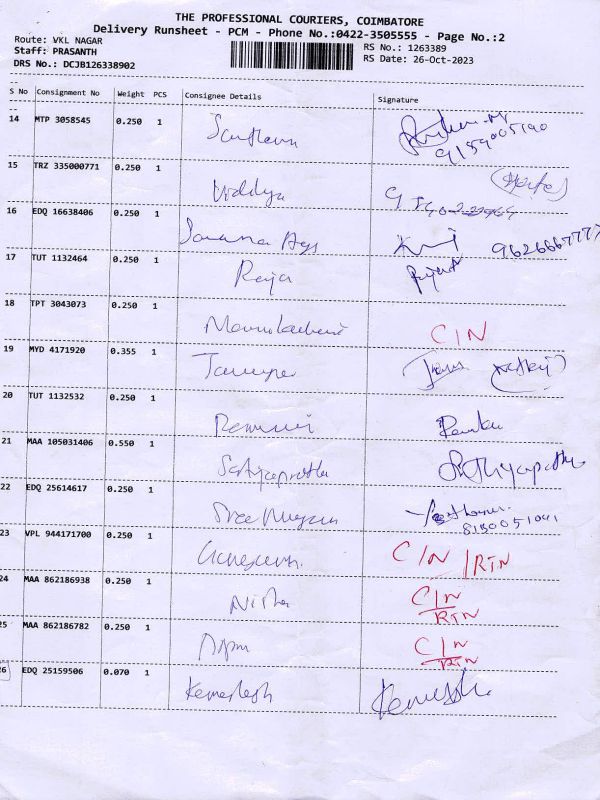 THE PROFESSIONAL COURIERS, COIMBATORE
Delivery Runsheet - PCM - Phone No.:0422-3505555 - Page No.:2
Route: VKL NAGAR
RS No.: 1263389
Staff: PRASANTH
RS Date: 26-Oct-2023
DRS No.: DCJB126338902
S No Consignment No Weight PCS Consignee Details Signature
14 MTP 3058545 0.250 1
9159005190
15 TRZ 335000771 0.250 1
Viddya
16 EDQ 16638406 0.250 1
9626667777
17 TUT 1132464 0.250 1
Raja
18 TPT 3043073 0.250 1
C/N
19 MYD 4171920 0.355 1
20 TUT 1132532 0.250 1
21 MAA 105031406 0.550 1
Sathyapratha
22 EDQ 25614617 0.250 1
Sree Murugan
8180051041
23 VPL 944171700 0.250 1
C/N /RTN
24 MAA 862186938 0.250 1
Nisha C/N
RTN
25 MAA 862186782 0.250 1
C/N
RTN
26 EDQ 25159506 0.070 1
Kamalesh